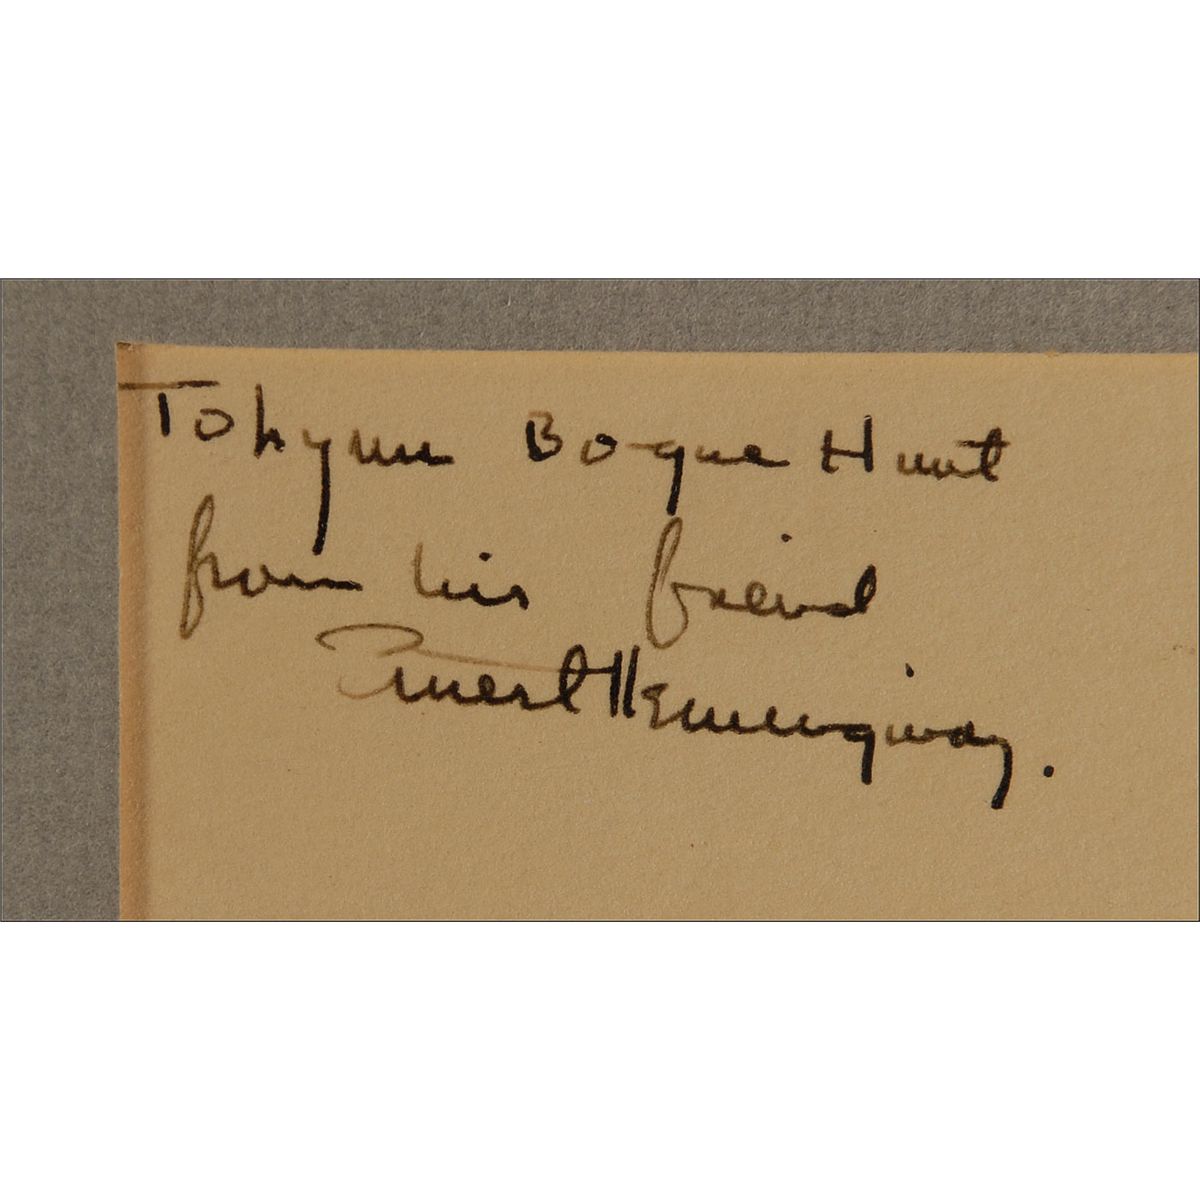 To Lynn Bogue Hunt
from his friend
Ernest Hemingway.